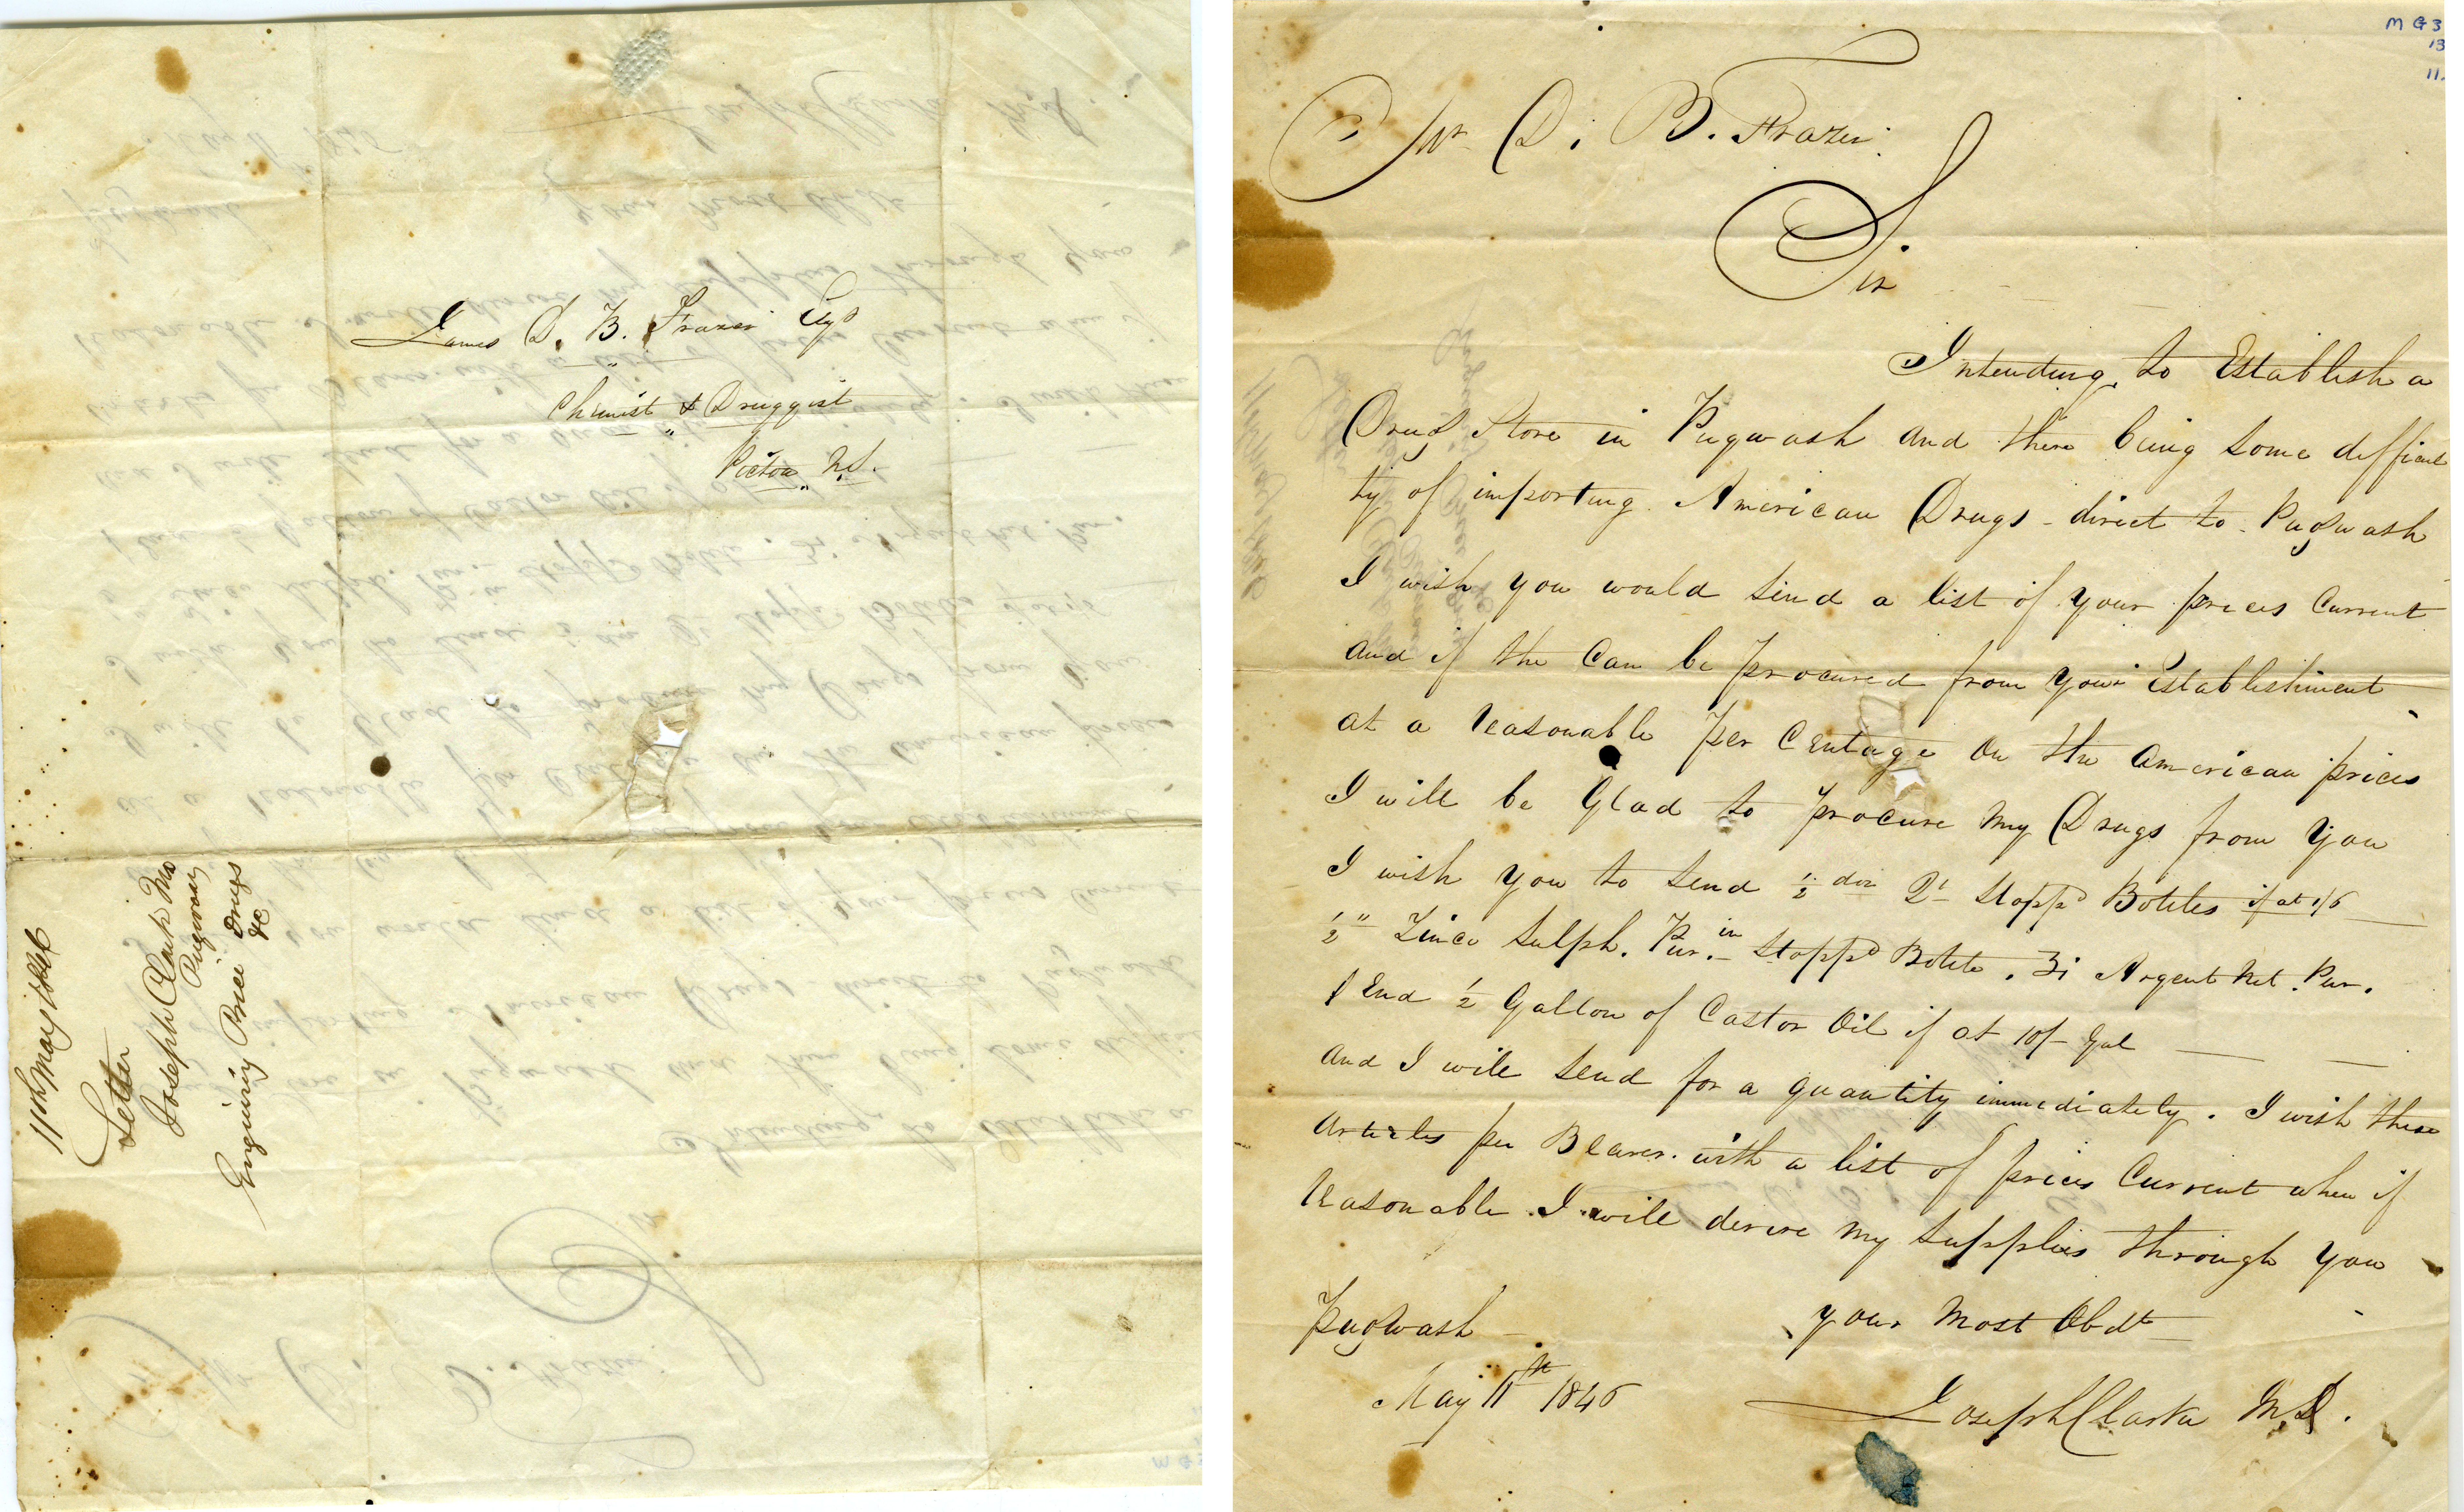 James D. B. Frazer Esqr
Chemist & Druggist
Pictou N.S.
11th May 1846
Letter
Joseph Clark MD
Pugwash
Enquiring Price Drugs
&c
MG3
13
11.
Mr D. B. Frazer
Sir
Intending to Establish a
Drug Store in Pugwash and there being some difficul
ty of importing American Drugs direct to Pugwash
I wish you would send a list of your prices Current
and if the Can be procured from your Establishment
at a reasonable per Centage on the American prices
I will be Glad to procure my Drugs from you
I wish you to send ½ doz Stoppd Bottles if at 1/6
½ " Zinco Sulph. Pur. in Stoppd Bottle. ʒi Argent Nit. Pur.
½ Gallon of Castor Oil if at 10/- Gal
and I will send for a quantity immediately. I wish these
articles per Bearer with a list of prices Current when if
reasonable I will derive my supplies through you
Pugwash
your Most Obdt
May 11th 1846
Joseph Clarke M.D.